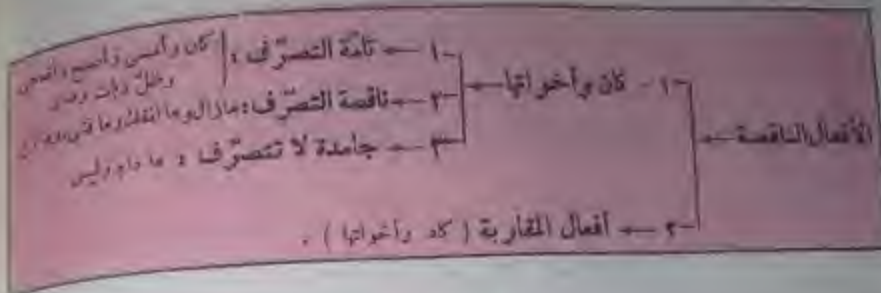 الأفعال الناقصة
١ - كان وأخواتها
١ - تامّة التصرّف : كان وأمسى وأصبح وأضحى
وظلّ وبات وصار
٢ - ناقصة التصرّف : ما زال وما انفك وما فتىء وما برح
٣ - جامدة لا تتصرّف : ما دام وليس
٢ - أفعال المقاربة ( كاد وأخواتها ) .